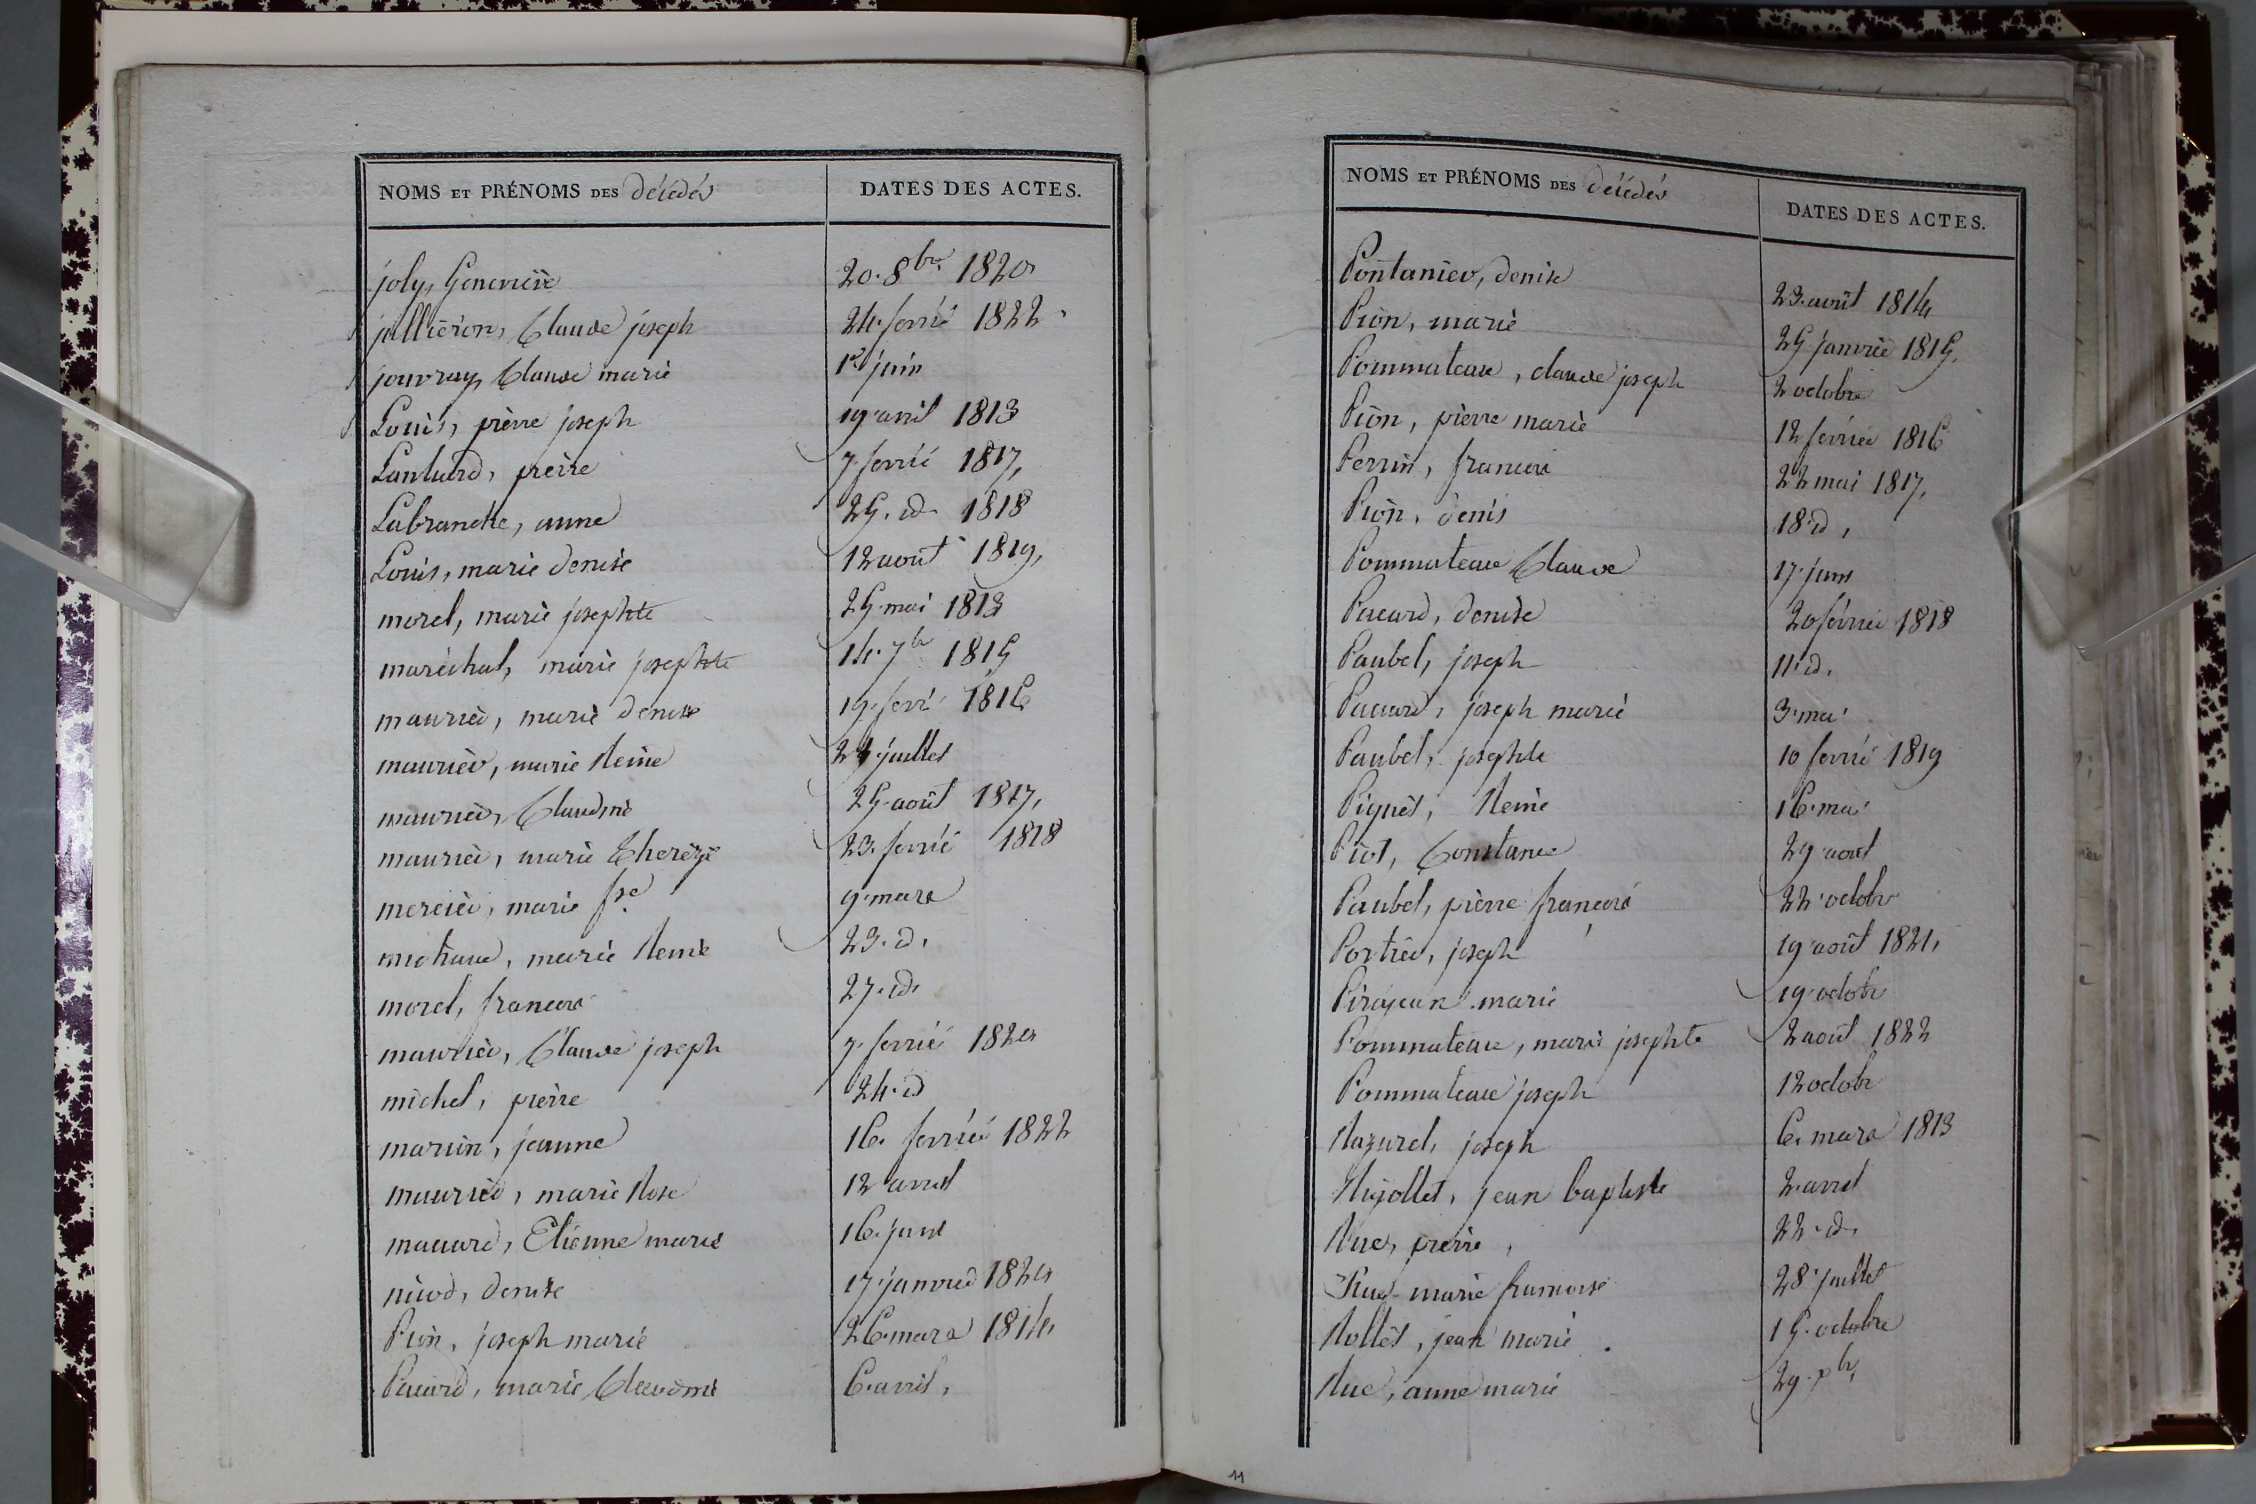 NOMS ET PRÉNOMS DES décédés DATES DES ACTES.
joly, Genevieve 20. 8bre 1820
jullieron, Claude joseph 24. fevrié 1822
jouvray, Claude marie 1er juin
Louis, pierre joseph 19 avril 1813
Lanluard, pierre 7. fevrié 1817,
Labranche, anne 25. id. 1818
Louis, marie denise 12 aout 1819,
morel, marie josephte 25. mai 1813
maréchal, marie josephte 14. 7br 1815
maurier, marie denise 19. fevr. 1816
maurier, marie Reine 24. juillet
maurier, Claudine 25. août 1817,
maurier, marie Therèze 23. fevrié 1818
mercier, marie fse 9. mars
michaud, marie Reine 23. id.
morel, francois 27. id.
maurier, Claude joseph 7. fevrié 1820
michel, pierre 24. id
marvin, jeanne 16. fevrié 1822
maurier, marie Rose 12 avril
macard, Etienne marie 16. juin
nivod, denise 17. janvier 1820
Pion, joseph marie 26. mars 1814,
Pacard, marie Claudine 6. avril,
NOMS ET PRÉNOMS DES décédés DATES DES ACTES.
Pontanier, denise 23. août 1814
Pion, marie 25 janvier 1815,
Pommateau, claude joseph 2 octobre
Pion, pierre marie 12 fevrier 1816
Perrin, francois 22 mai 1817,
Pion, denis 18. id,
Pommateau Claude 17. juin
Pacard, denise 20 fevrier 1818
Paubel, joseph 11. id.
Pacard, joseph marie 3. mai
Paubel, josephte 10 fevrié 1819
Piquet, Reine 16. mai
Piot, Constance 29 aout
Paubel, pierre francois 22. octobr
Portier, joseph 19. août 1821,
Pirojean marie 19. octobr
Pommateau, marie josephte 2 août 1822
Pommateau joseph 12 octobr
Razurel, joseph 6. mars 1813
Rujollet, jean baptiste 2. avril
Rue, pierre, 22. id.
Rue marie francoise 28. juillet
Rollet, jean marie 15. octobre
Rue, anne marie 29. 9br,
11